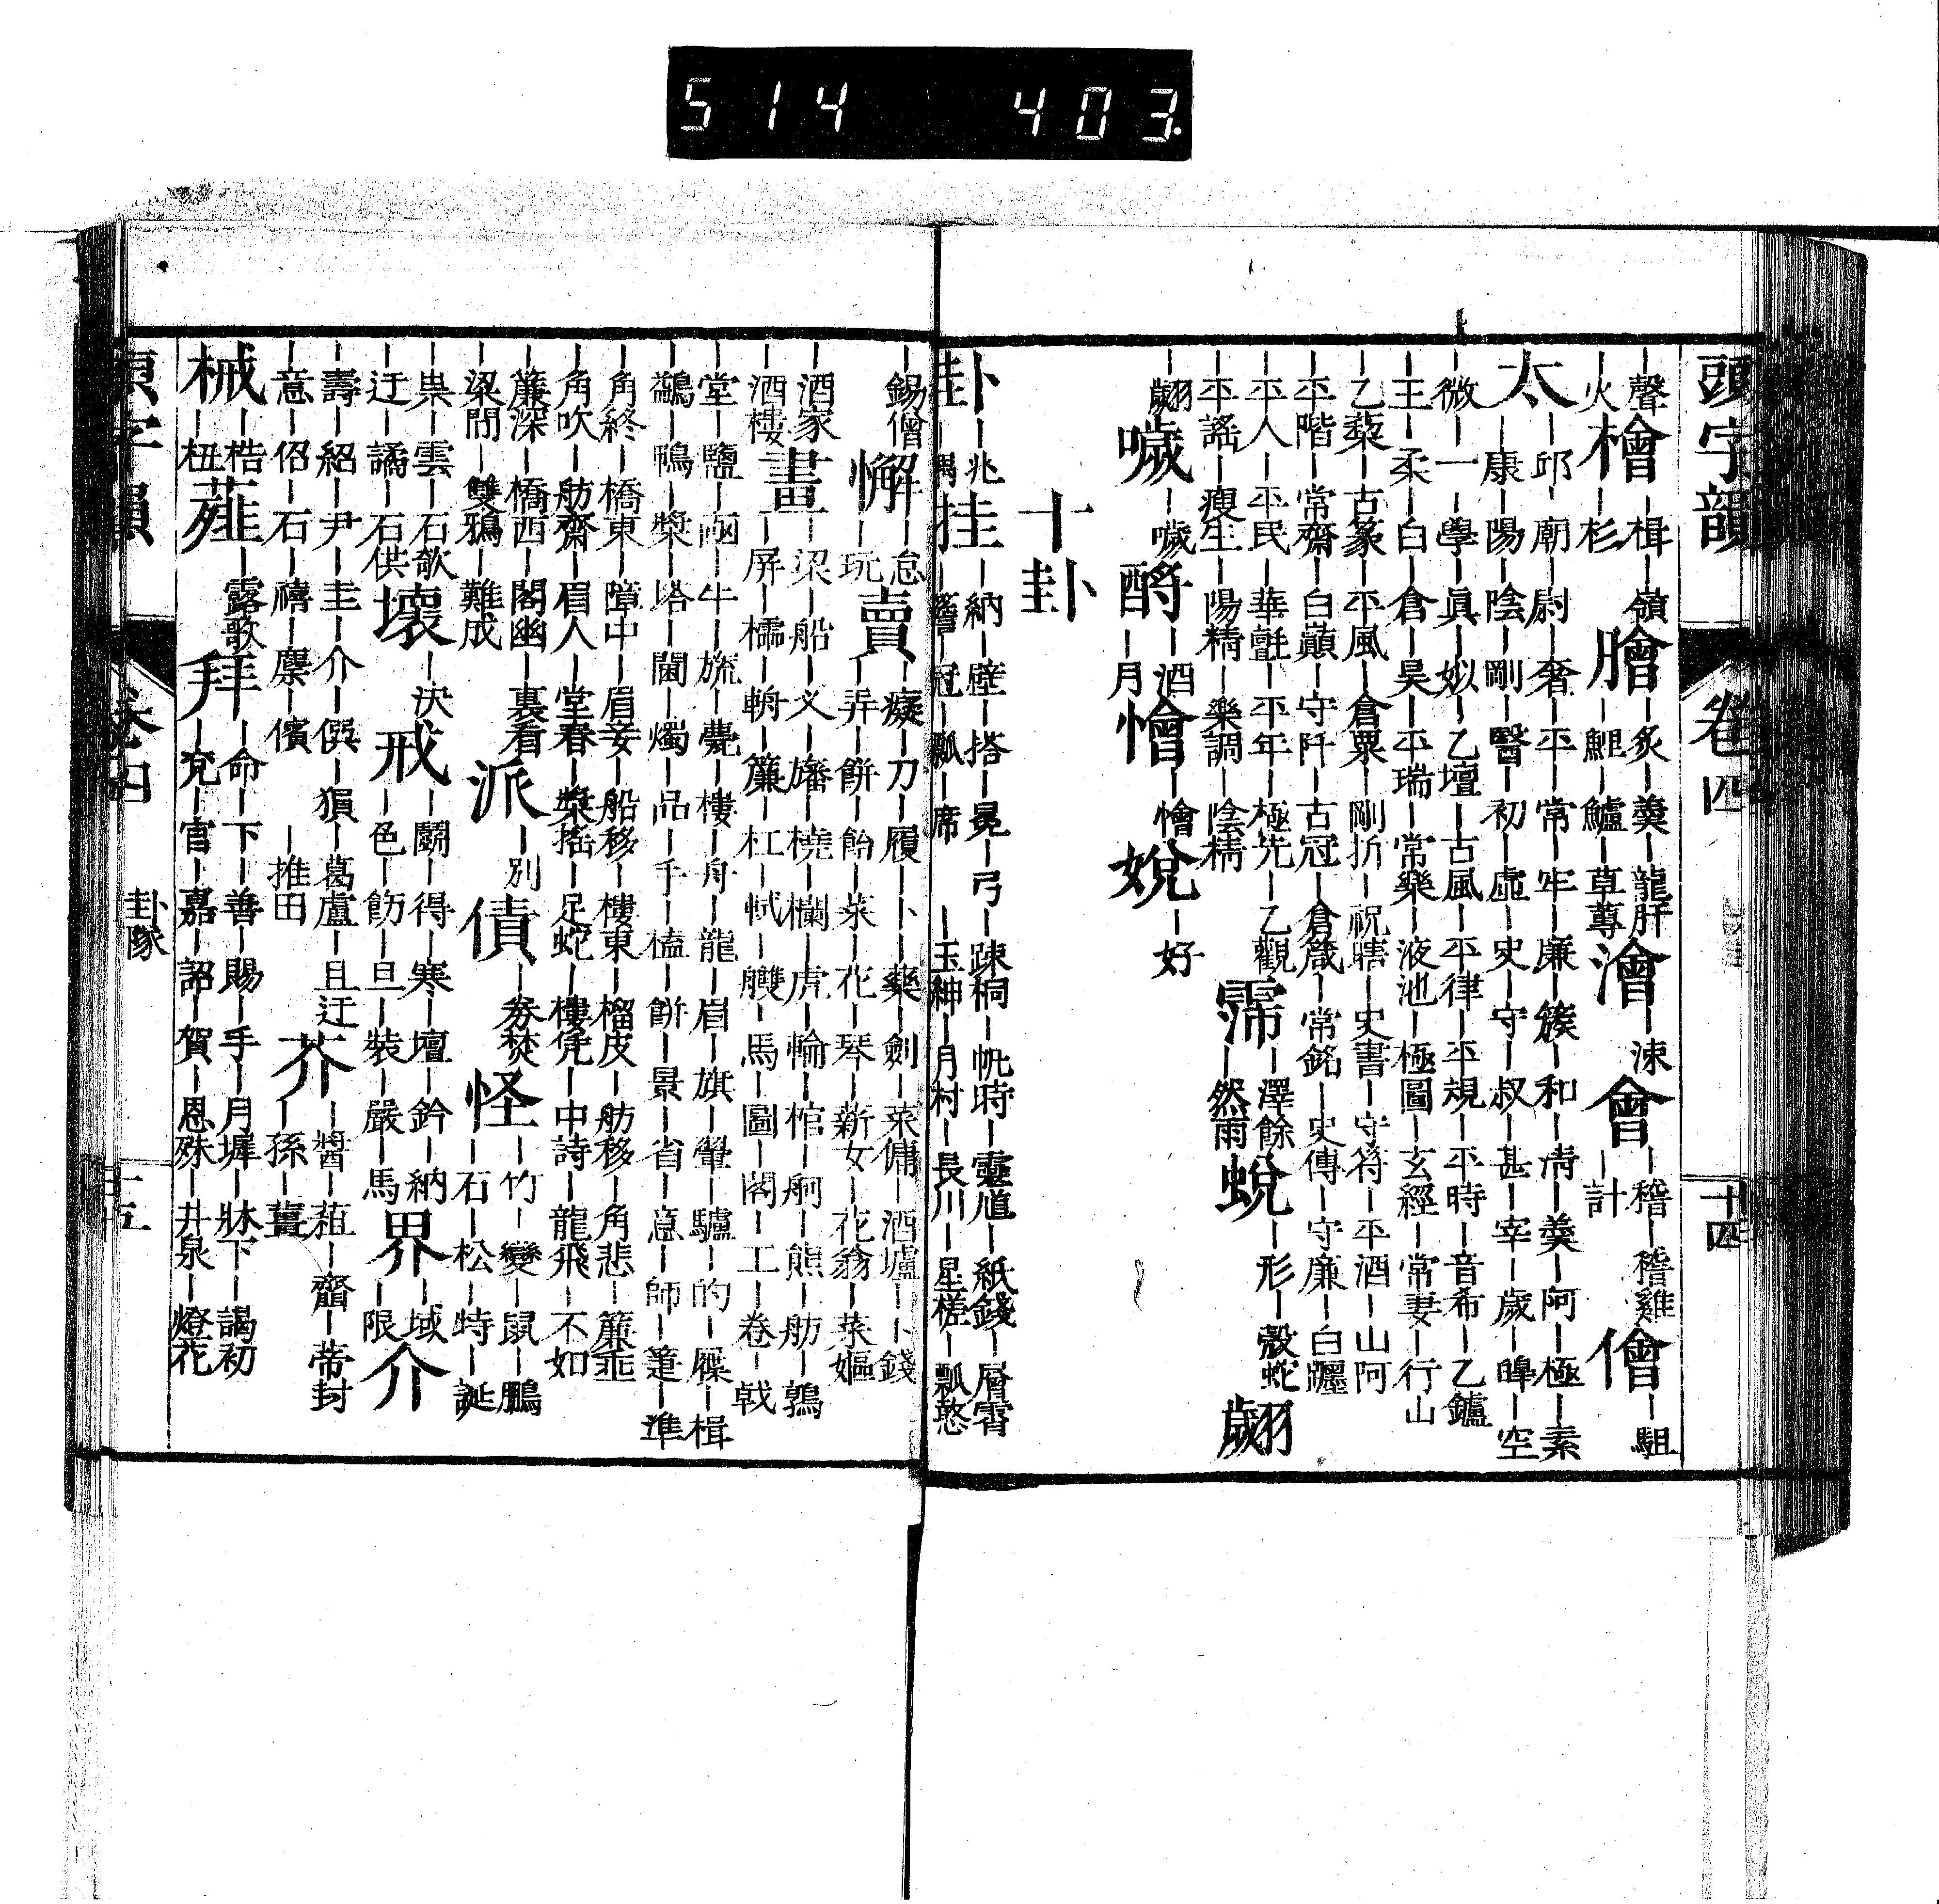 514 403
頭字韻 卷四 十四
｜聲檜｜楫｜嶺膾｜炙｜羹｜龍肝澮｜涑會｜稽｜稽雞儈｜駔
｜火｜杉｜鯉｜鱸｜草蓴｜計
太｜邱｜廟｜尉｜奢｜平｜常｜牢｜廉｜簇｜和｜淸｜羹｜阿｜極｜素
｜康｜陽｜陰｜剛｜醫｜初｜虛｜史｜守｜叔｜甚｜宰｜歲｜皥｜空
｜微｜一｜學｜眞｜姒｜乙壇｜古風｜平律｜平規｜平時｜音希｜乙鑪
｜王｜柔｜白｜倉｜昊｜平瑞｜常樂｜液池｜極圖｜玄經｜常妻｜行山
｜乙藜｜古篆｜平風｜倉粟｜剛折｜祝瞎｜史書｜守符｜平酒｜山阿
｜平階｜常齋｜白巔｜守阡｜古冠｜倉箴｜常銘｜史傳｜守廉｜白躔
｜平人｜平民｜華氈｜平年｜極先｜乙觀霈｜澤餘蛻｜形｜殼蛇翽
｜平謠｜瘦生｜陽精｜樂調｜陰精｜然雨
｜翽噦｜噦酹｜酒懀｜懀娧｜好
｜月
十卦
卦｜兆挂｜納｜壁｜搭｜冕｜弓｜疎桐｜帆時｜靈馗｜紙錢｜層霄
冠｜瓢｜席｜玉紳｜月村｜長川｜星槎｜瓢憨
｜錫僧懈｜怠賣｜癡｜刀｜履｜卜｜藥｜劍｜菜傭｜酒壚｜卜錢
｜玩｜弄｜餅｜飴｜菜｜花｜琴｜薪女｜花翁｜菜嫗
｜酒家畫｜梁｜船｜义｜旛｜橈｜欄｜虎｜輪｜棺｜舸｜熊｜舫｜鶉
｜酒樓｜屏｜檽｜輈｜簾｜杠｜軾｜艭｜馬｜圖｜閣｜工｜卷｜戟
｜堂｜鹽｜牛｜旒｜甍｜樓｜舟｜龍｜眉｜旗｜翬｜驢｜的｜屧｜楫
｜鷁｜鴨｜槳｜塔｜閫｜燭｜品｜手｜榼｜餅｜景｜省｜意｜師｜箑｜準
｜角終｜橋東｜障中｜眉妾｜船移｜樓東｜榴皮｜舫移｜角悲｜簾垂
｜角吹｜舫齋｜眉人｜堂春｜槳搖｜足蛇｜樓凭｜中詩｜龍飛｜不如
｜簾深｜橋西｜閣幽｜裏看派｜別債｜券焚怪｜竹｜變｜鼠｜鵬
｜梁問｜雙鴉｜難成｜石｜松｜特｜誕
｜祟｜雲｜石欹壞｜決戒｜鬭｜得｜寒｜壇｜鈐｜納界｜域介
｜迂｜譎｜石供｜色｜飭｜旦｜裝｜嚴｜馬｜限
｜壽｜紹｜尹｜圭｜介｜僎｜猖｜葛盧｜且迂芥｜醬｜菹｜齏｜蒂封
｜意｜侶｜石｜禧｜麋｜儐｜推田｜孫｜薑
械｜梏薤｜露歌拜｜命｜下｜善｜賜｜手｜月墀｜牀下｜謁初
｜杻｜兗｜官｜嘉｜詔｜賀｜恩殊｜井泉｜燈花
頭字韻 卷四 卦隊 十五